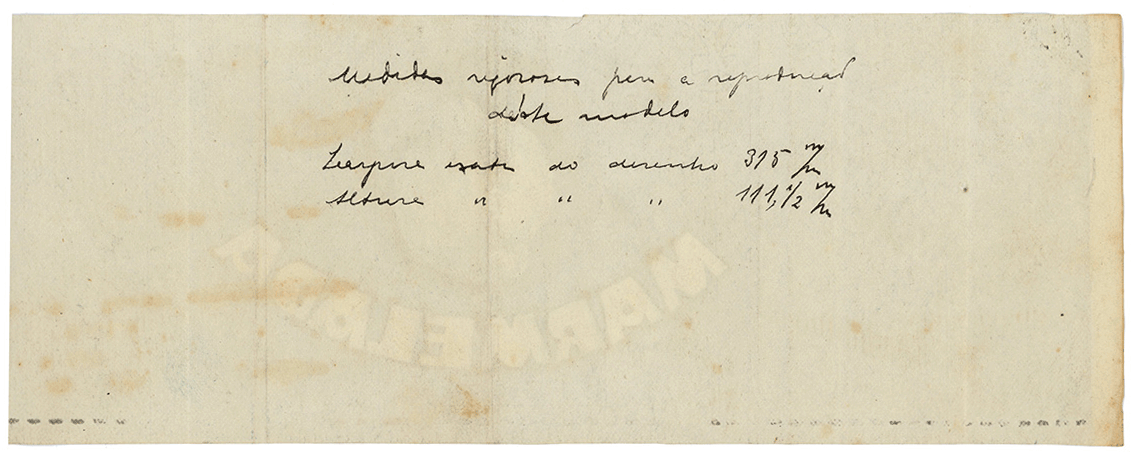 Medidas rigorosas para a reprodução
dêste modelo
Largura exata do desenho 315 m/m
Altura " " " 111,1/2 m/m
MARMELADA